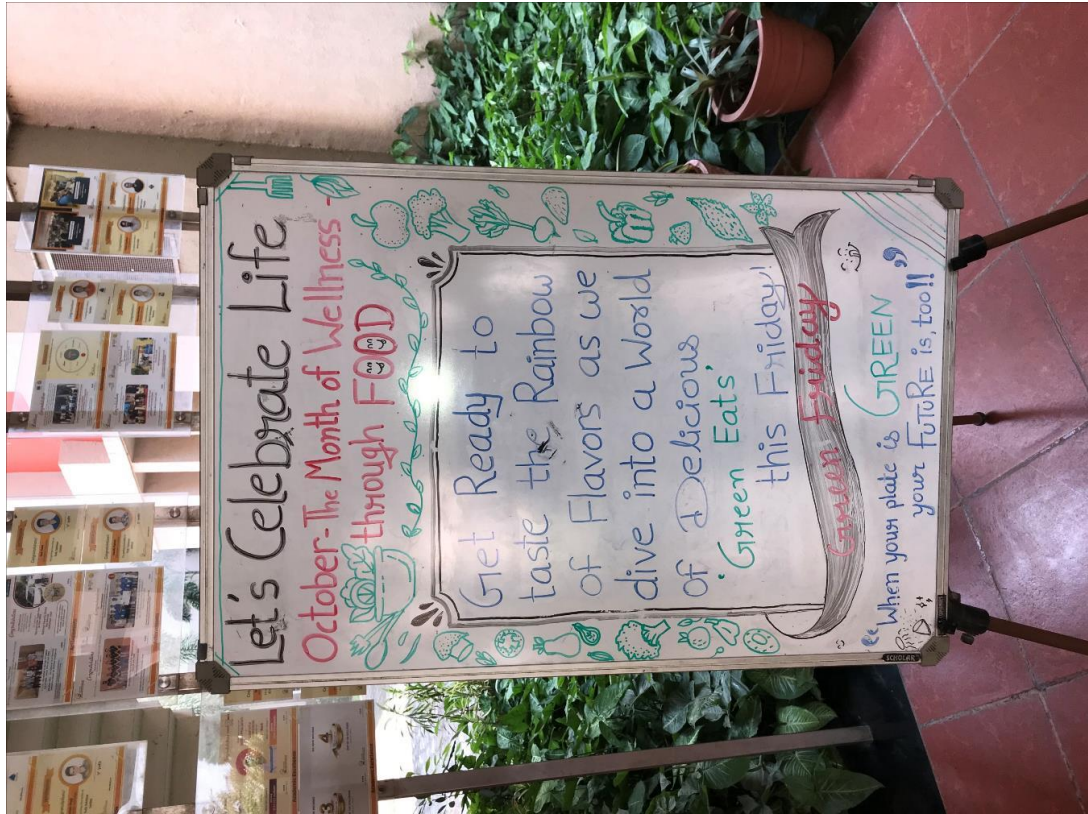 Let's Celebrate Life
October-The Month of Wellness-
through FOOD
Get Ready to
taste the Rainbow
of Flavors as we
dive into a World
of Delicious
'Green Eats'
this Friday!
Green Friday
"When your plate is GREEN
your FUTURE is, too!!"
SCHOLAR